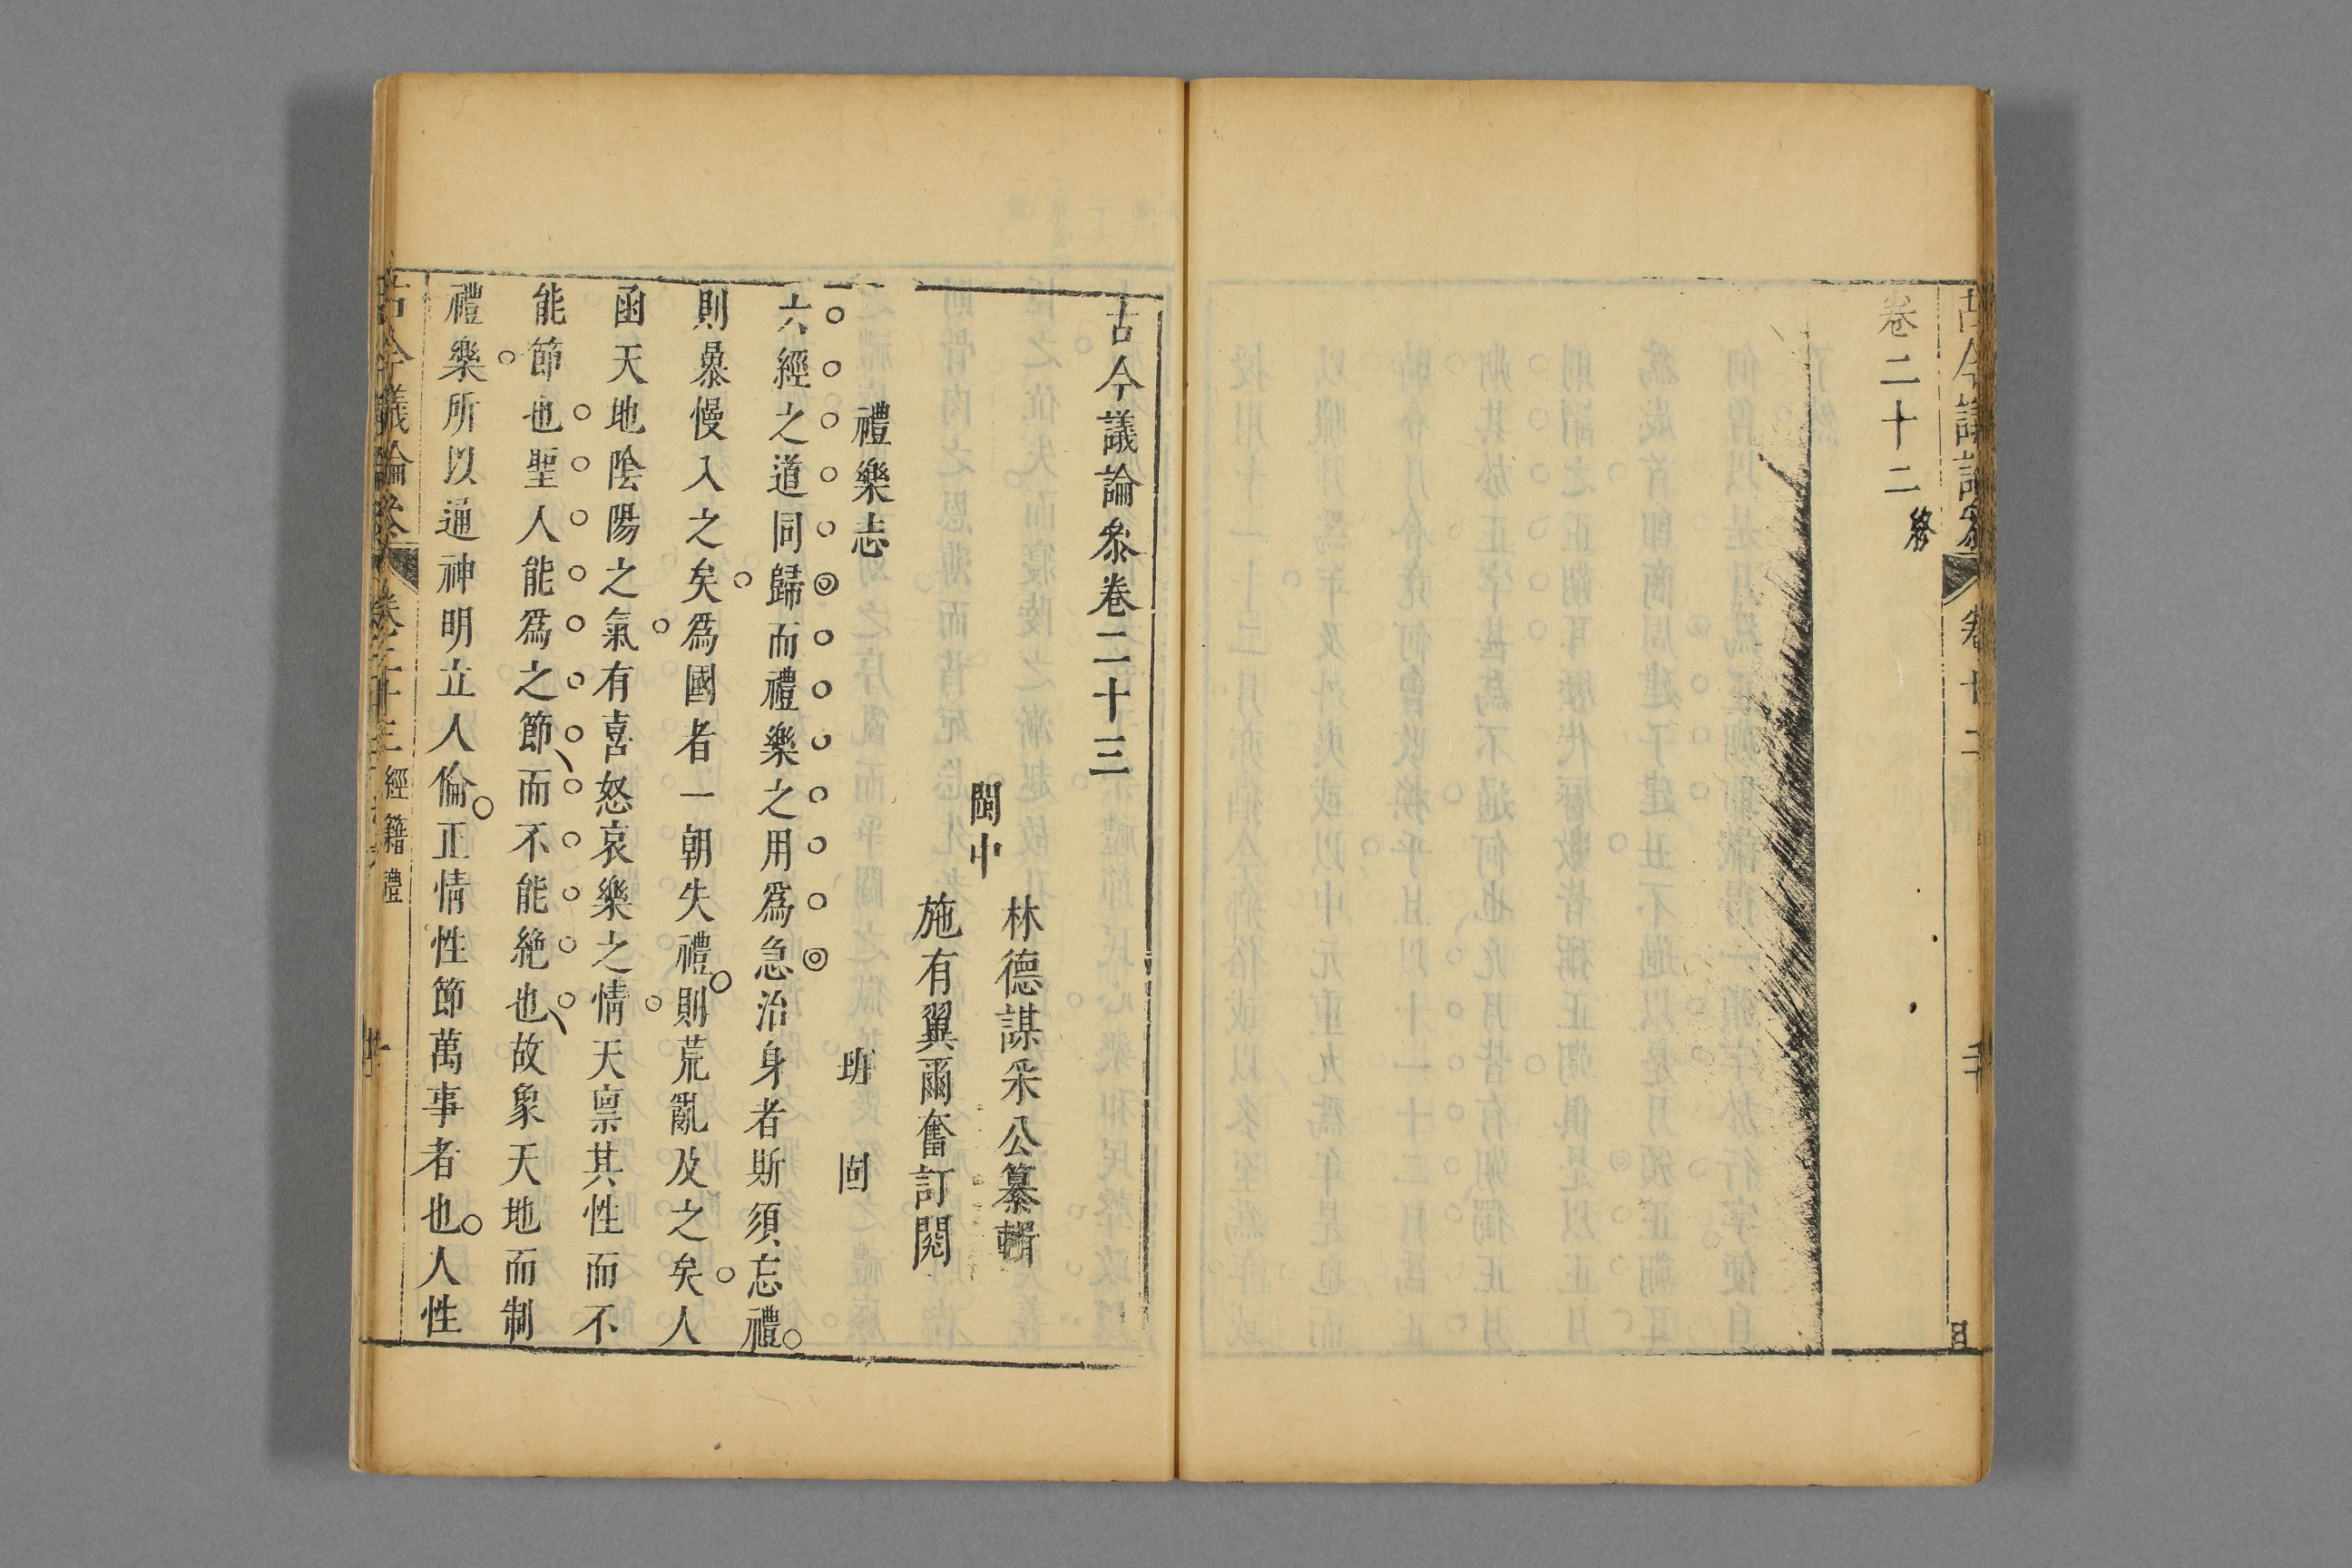 卷二十二終
古今議論叅卷二十三
閩中
林德謀采公纂輯
施有翼爾奮訂閱
禮樂志
班固
六經之道同歸而禮樂之用爲急治身者斯須忘禮
則暴慢入之矣爲國者一朝失禮則荒亂及之矣人
函天地陰陽之氣有喜怒哀樂之情天禀其性而不
能節也聖人能爲之節而不能絶也故象天地而制
禮樂所以通神明立人倫正情性節萬事者也人性
古今議論叅
卷二十三
經籍禮